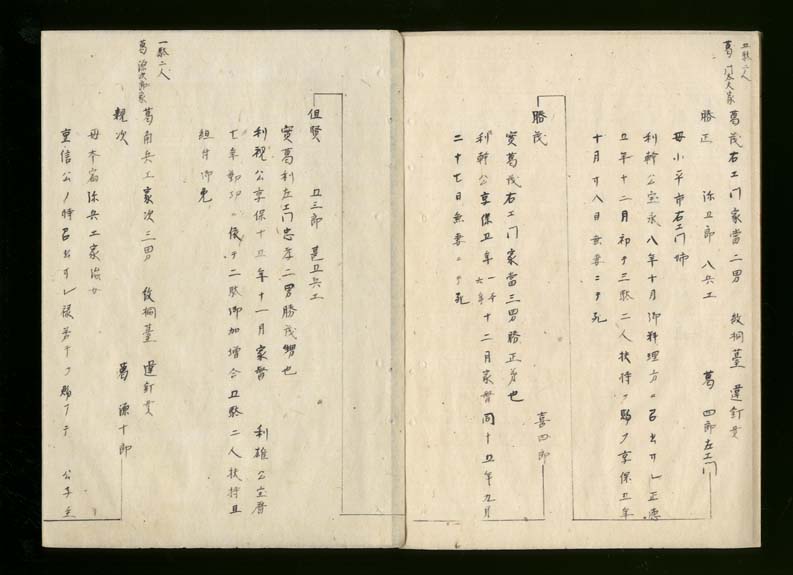 五駄二人
葛 家
葛茂右エ門家當二男 紋桐薹 違釘貫
葛 四郎左エ門
勝正 弥五郎 八兵エ
母小平市右エ門姉
利幹公宝永八年十月御料理方ニ召出サレ正徳
五年十二月初テ三駄二人扶持ヲ賜フ享保五年
十月廿八日無妻ニテ死
喜四郎
勝茂
実葛茂右エ門家當三男勝正弟也
利幹公享保五年十二月家督同十五年九月
二十七日無妻ニテ死
但賢 又三郎 甚五兵エ
実葛利左エ門忠孝二男勝茂甥也
利視公享保十五年十一月家督 利雄公宝暦
七年勤功ニ依テ二駄御加増合五駄二人扶持且
組付御免
一駄二人
葛 源次郎家
葛甫兵エ家次三男 紋桐薹 違釘貫
葛 源十郎
親次
母本宿弥兵エ家治女
重信公ノ時召出サレ様ヲ賜フテ 公子